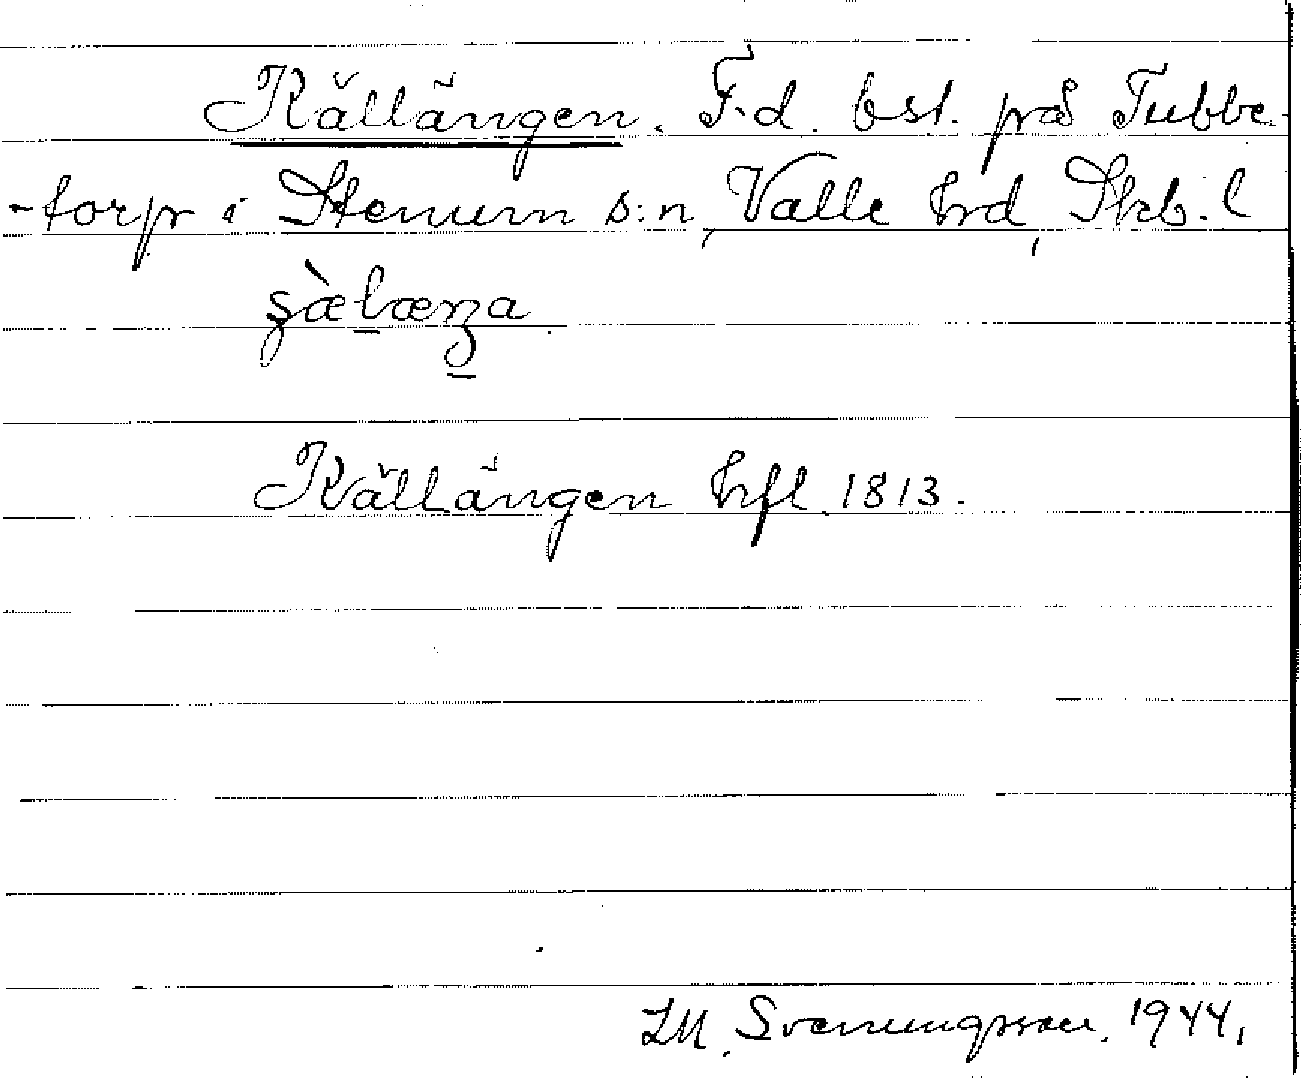 Källängen. F.d. bst. på Tubbe-
-torp i Stenum s:n, Valle hrd, Skb. l
Källängen hfl. 1813.
LM. Svenungsson. 1944.